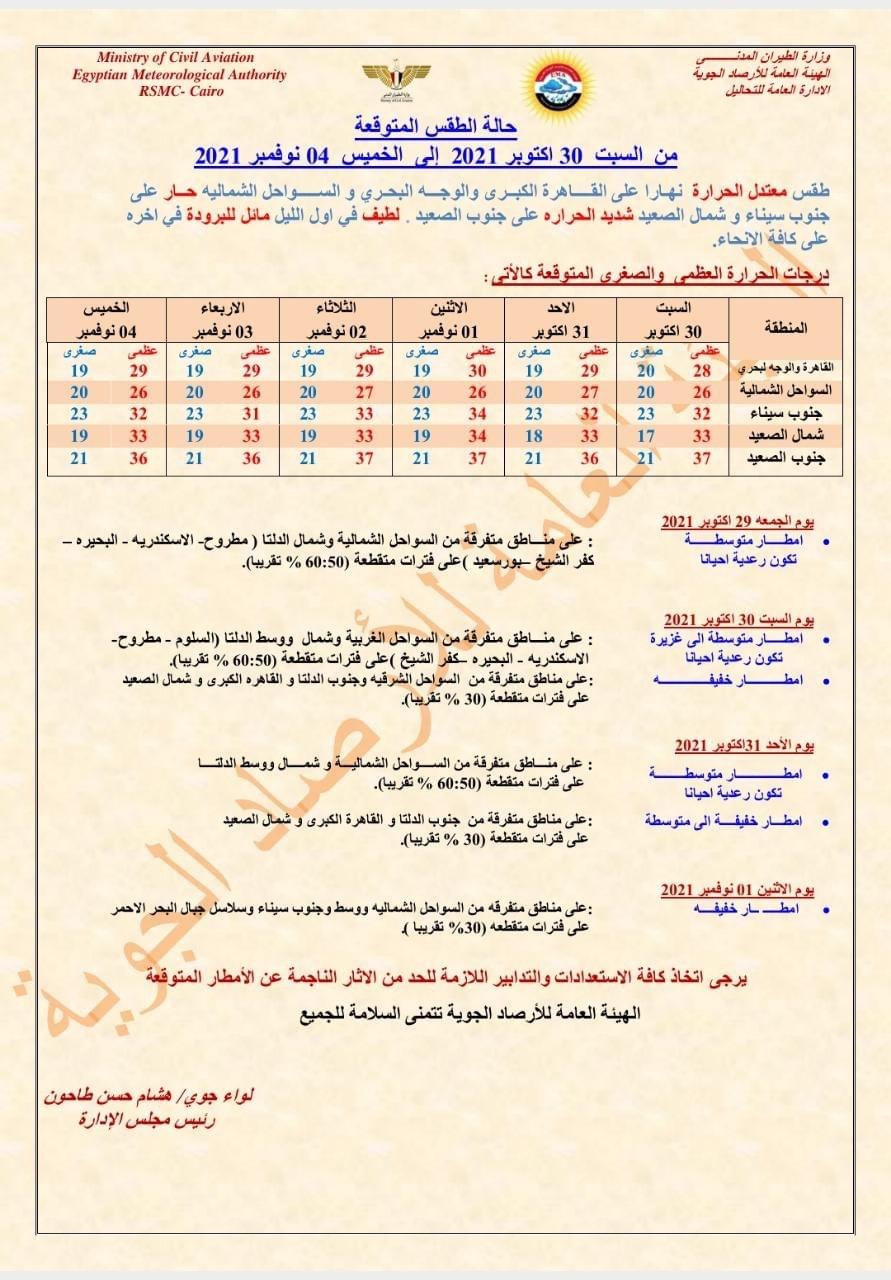 Ministry of Civil Aviation
Egyptian Meteorological Authority
RSMC- Cairo
وزارة الطيران المدنـــــي
الهيئة العامة للأرصاد الجوية
الادارة العامة للتحاليل
حالة الطقس المتوقعة
من السبت 30 اكتوبر 2021 إلى الخميس 04 نوفمبر 2021
طقس معتدل الحرارة نهارا على القـــاهرة الكبـرى والوجـه البحـري و الســـواحل الشماليه حـار على
جنوب سيناء و شمال الصعيد شديد الحراره على جنوب الصعيد . لطيف في اول الليل مائل للبرودة في اخره
على كافة الانحاء.
درجات الحرارة العظمى والصغرى المتوقعة كالأتي :
المنطقة السبت الاحد الاثنين الثلاثاء الاربعاء الخميس
30 اكتوبر 31 اكتوبر 01 نوفمبر 02 نوفمبر 03 نوفمبر 04 نوفمبر
عظمى صغرى عظمى صغرى عظمى صغرى عظمى صغرى عظمى صغرى عظمى صغرى
القاهرة والوجه لبحري 28 20 29 19 30 19 29 19 29 19 29 19
السواحل الشمالية 26 20 27 20 26 20 27 20 26 20 26 20
جنوب سيناء 32 23 32 23 34 23 33 23 31 23 32 23
شمال الصعيد 33 17 33 18 34 19 33 19 33 19 33 19
جنوب الصعيد 37 21 36 21 37 21 37 21 36 21 36 21
يوم الجمعه 29 اكتوبر 2021
• امطـــار متوسطـــة : على منـــاطق متفرقة من السواحل الشمالية وشمال الدلتا ( مطروح- الاسكندريه - البحيره –
تكون رعدية احيانا كفر الشيخ –بورسعيد )على فترات متقطعة (60:50 % تقريبا).
يوم السبت 30 اكتوبر 2021
• امطـــار متوسطة الى غزيرة : على منـــاطق متفرقة من السواحل الغربية وشمال ووسط الدلتا (السلوم - مطروح-
تكون رعدية احيانا الاسكندريه - البحيره –كفر الشيخ )على فترات متقطعة (60:50 % تقريبا).
• امطـــار خفيفـــــه :على مناطق متفرقة من السواحل الشرقيه وجنوب الدلتا و القاهره الكبرى و شمال الصعيد
على فترات متقطعة (30 % تقريبا).
يوم الأحد 31اكتوبر 2021
• امطـــــار متوسطـــــة : على منـــاطق متفرقة من الســـواحل الشماليـــة و شمـــال ووسط الدلتـــا
تكون رعدية احيانا على فترات متقطعة (60:50 % تقريبا).
• امطـــار خفيفـــة الى متوسطة :على مناطق متفرقة من جنوب الدلتا و القاهرة الكبرى و شمال الصعيد
على فترات متقطعة (30 % تقريبا).
يوم الاثنين 01 نوفمبر 2021
• امطـــ ـار خفيفـــه :على مناطق متفرقه من السواحل الشماليه ووسط وجنوب سيناء وسلاسل جبال البحر الاحمر
على فترات متقطعه (30% تقريبا ).
يرجى اتخاذ كافة الاستعدادات والتدابير اللازمة للحد من الاثار الناجمة عن الأمطار المتوقعة
الهيئة العامة للأرصاد الجوية تتمنى السلامة للجميع
لواء جوي/ هشام حسن طاحون
رئيس مجلس الإدارة
الهيئة العامة للأرصاد الجوية